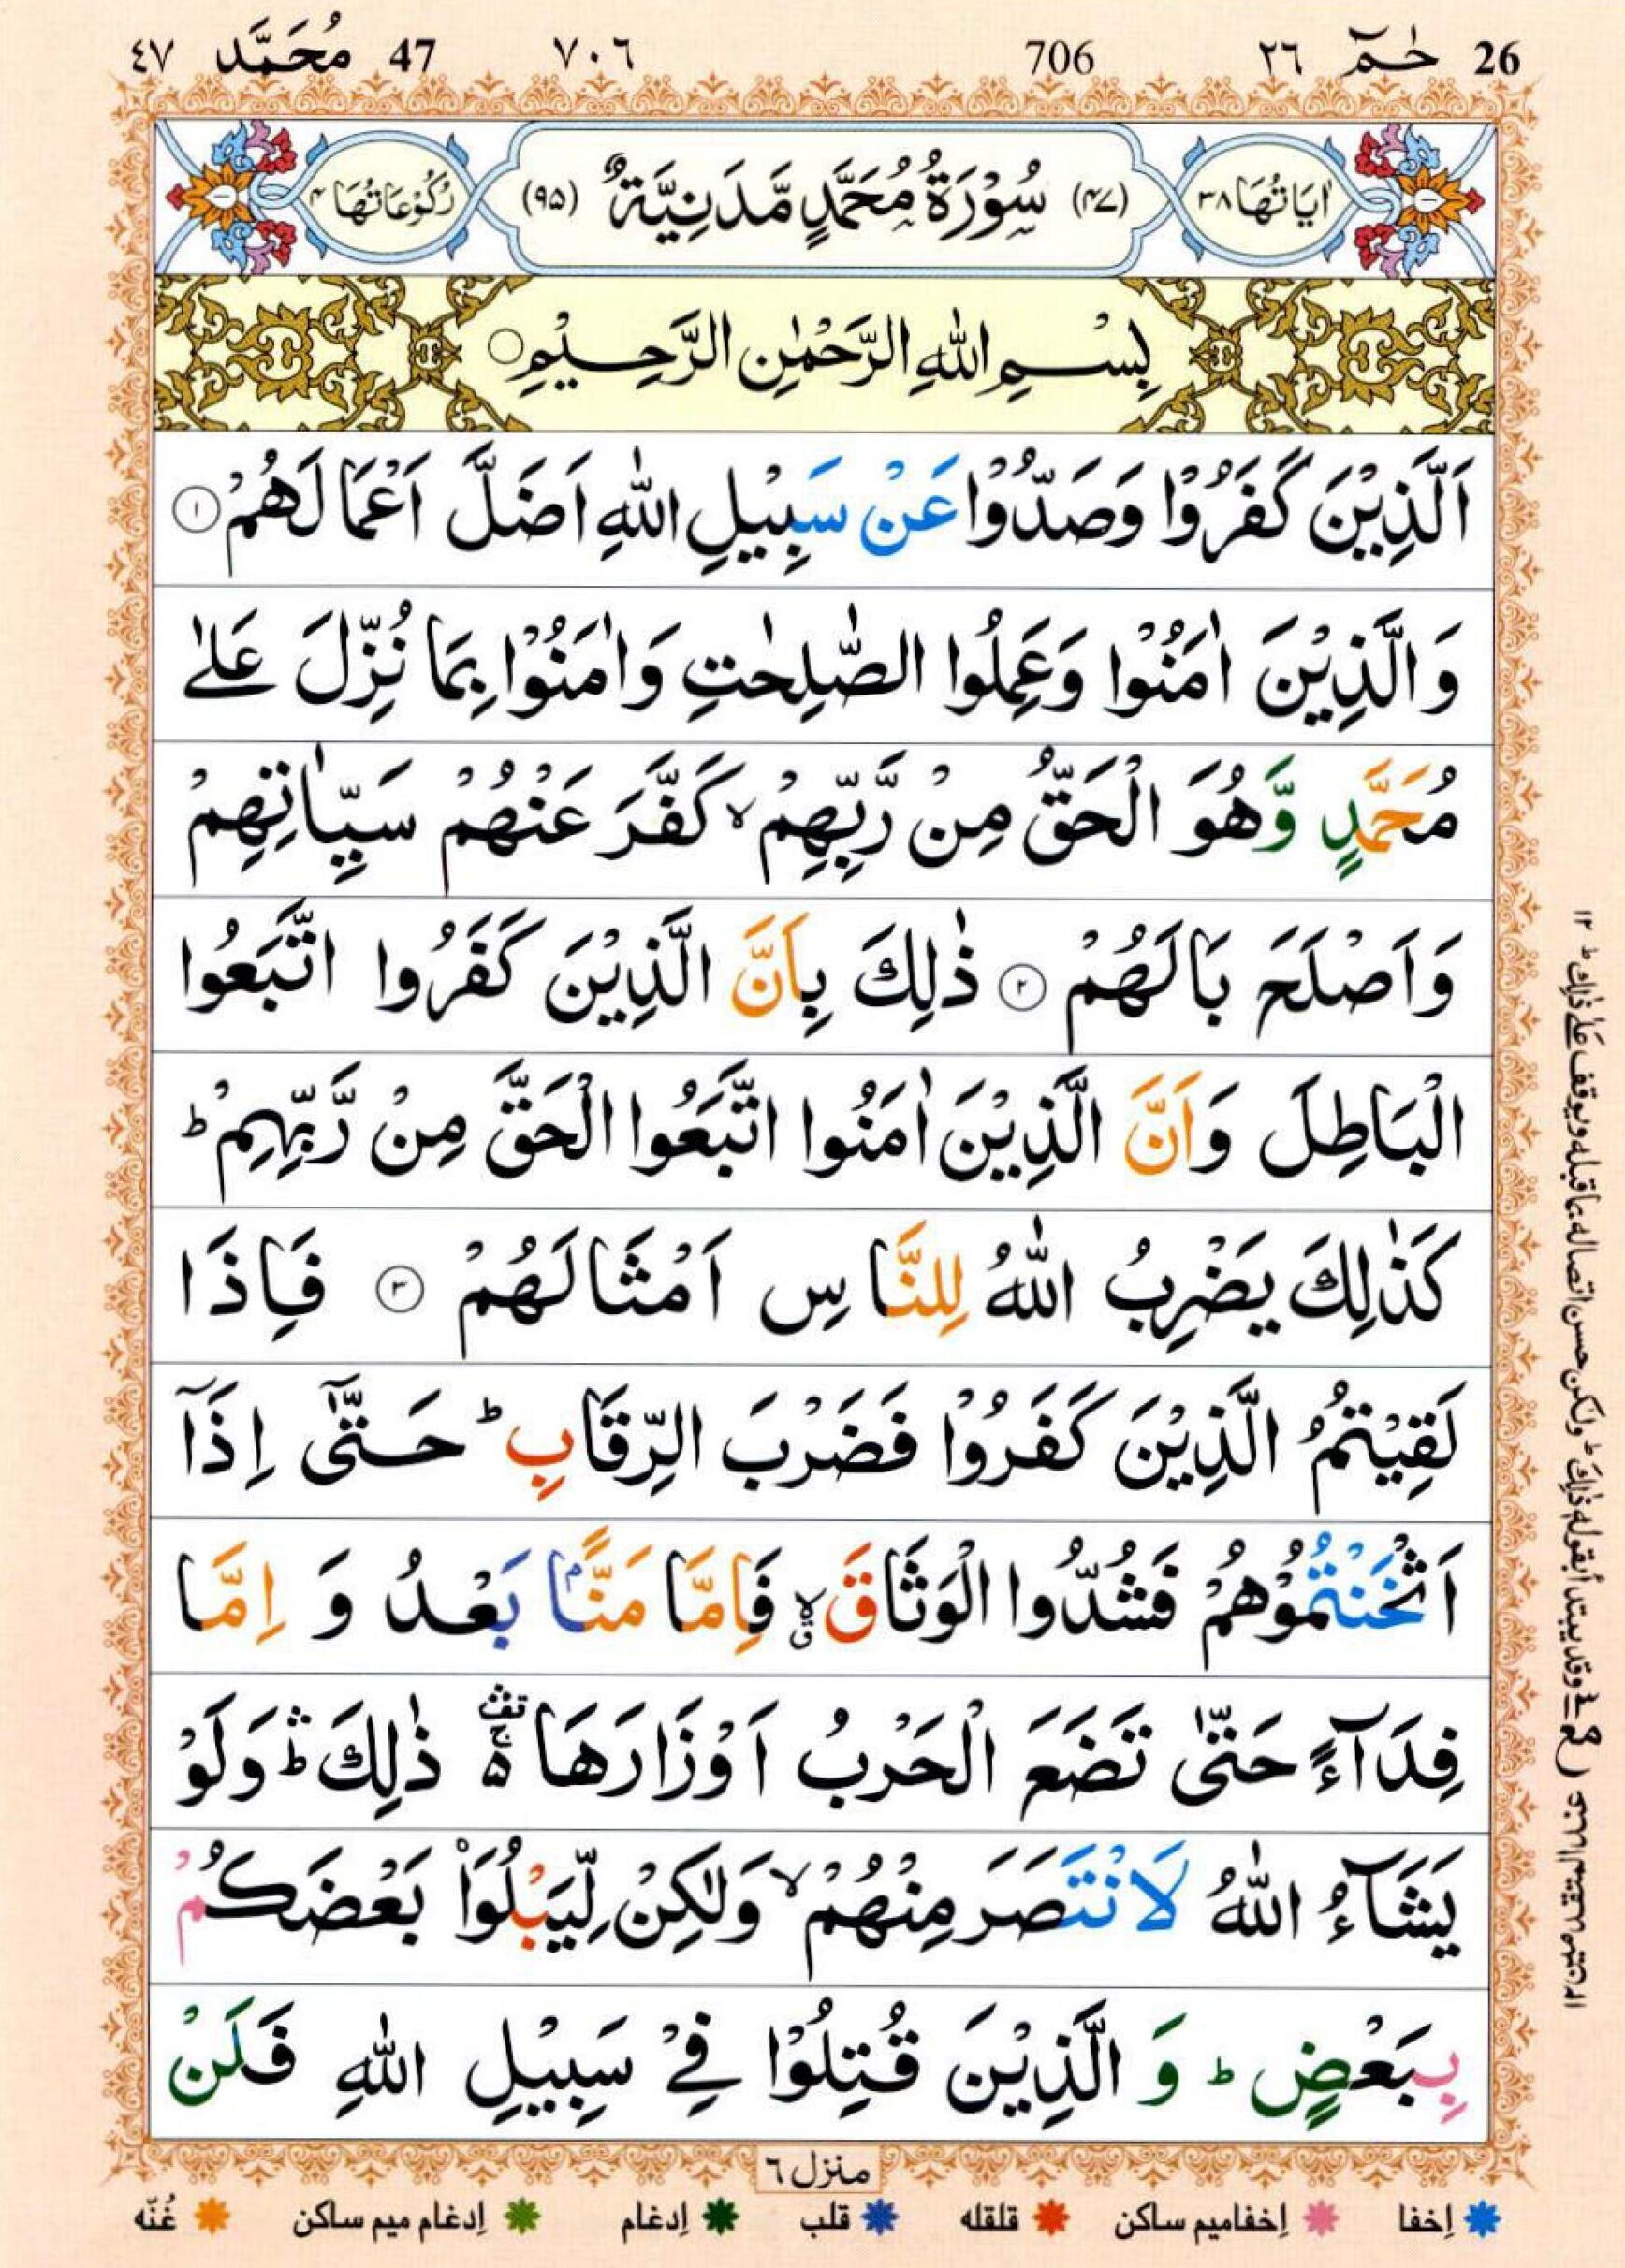 26 حٰمٓ ٢٦ 706 ٧٠٦ 47 مُحَمَّد ٤٧
اٰيَاتُهَا ٣٨ (٤٧) سُوْرَةُ مُحَمَّدٍ مَّدَنِيَّةٌ (٩٥) رُكُوْعَاتُهَا ٤
بِسْمِ اللّٰهِ الرَّحْمٰنِ الرَّحِيْمِ
اَلَّذِيْنَ كَفَرُوْا وَصَدُّوْا عَنْ سَبِيْلِ اللّٰهِ اَضَلَّ اَعْمَالَهُمْ ١
وَالَّذِيْنَ اٰمَنُوْا وَعَمِلُوا الصّٰلِحٰتِ وَاٰمَنُوْا بِمَا نُزِّلَ عَلٰى
مُحَمَّدٍ وَّهُوَ الْحَقُّ مِنْ رَّبِّهِمْ ۙ كَفَّرَ عَنْهُمْ سَيِّاٰتِهِمْ
وَاَصْلَحَ بَالَهُمْ ٢ ذٰلِكَ بِاَنَّ الَّذِيْنَ كَفَرُوا اتَّبَعُوا
الْبَاطِلَ وَاَنَّ الَّذِيْنَ اٰمَنُوا اتَّبَعُوا الْحَقَّ مِنْ رَّبِّهِمْ ؕ
كَذٰلِكَ يَضْرِبُ اللّٰهُ لِلنَّاسِ اَمْثَالَهُمْ ٣ فَاِذَا
لَقِيْتُمُ الَّذِيْنَ كَفَرُوْا فَضَرْبَ الرِّقَابِ ؕ حَتّٰٓى اِذَآ
اَثْخَنْتُمُوْهُمْ فَشُدُّوا الْوَثَاقَ ۙ فَاِمَّا مَنًّۢا بَعْدُ وَ اِمَّا
فِدَآءً حَتّٰى تَضَعَ الْحَرْبُ اَوْزَارَهَا ۛۚ ذٰلِكَ ۛؕ وَلَوْ
يَشَآءُ اللّٰهُ لَانْتَصَرَ مِنْهُمْ ۙ وَلٰكِنْ لِّيَبْلُوَا۟ بَعْضَكُمْ
بِبَعْضٍ ؕ وَ الَّذِيْنَ قُتِلُوْا فِيْ سَبِيْلِ اللّٰهِ فَلَنْ
منزل ٦
إخفا إخفاميم ساكن قلقله قلب إدغام إدغام ميم ساكن غُنّه